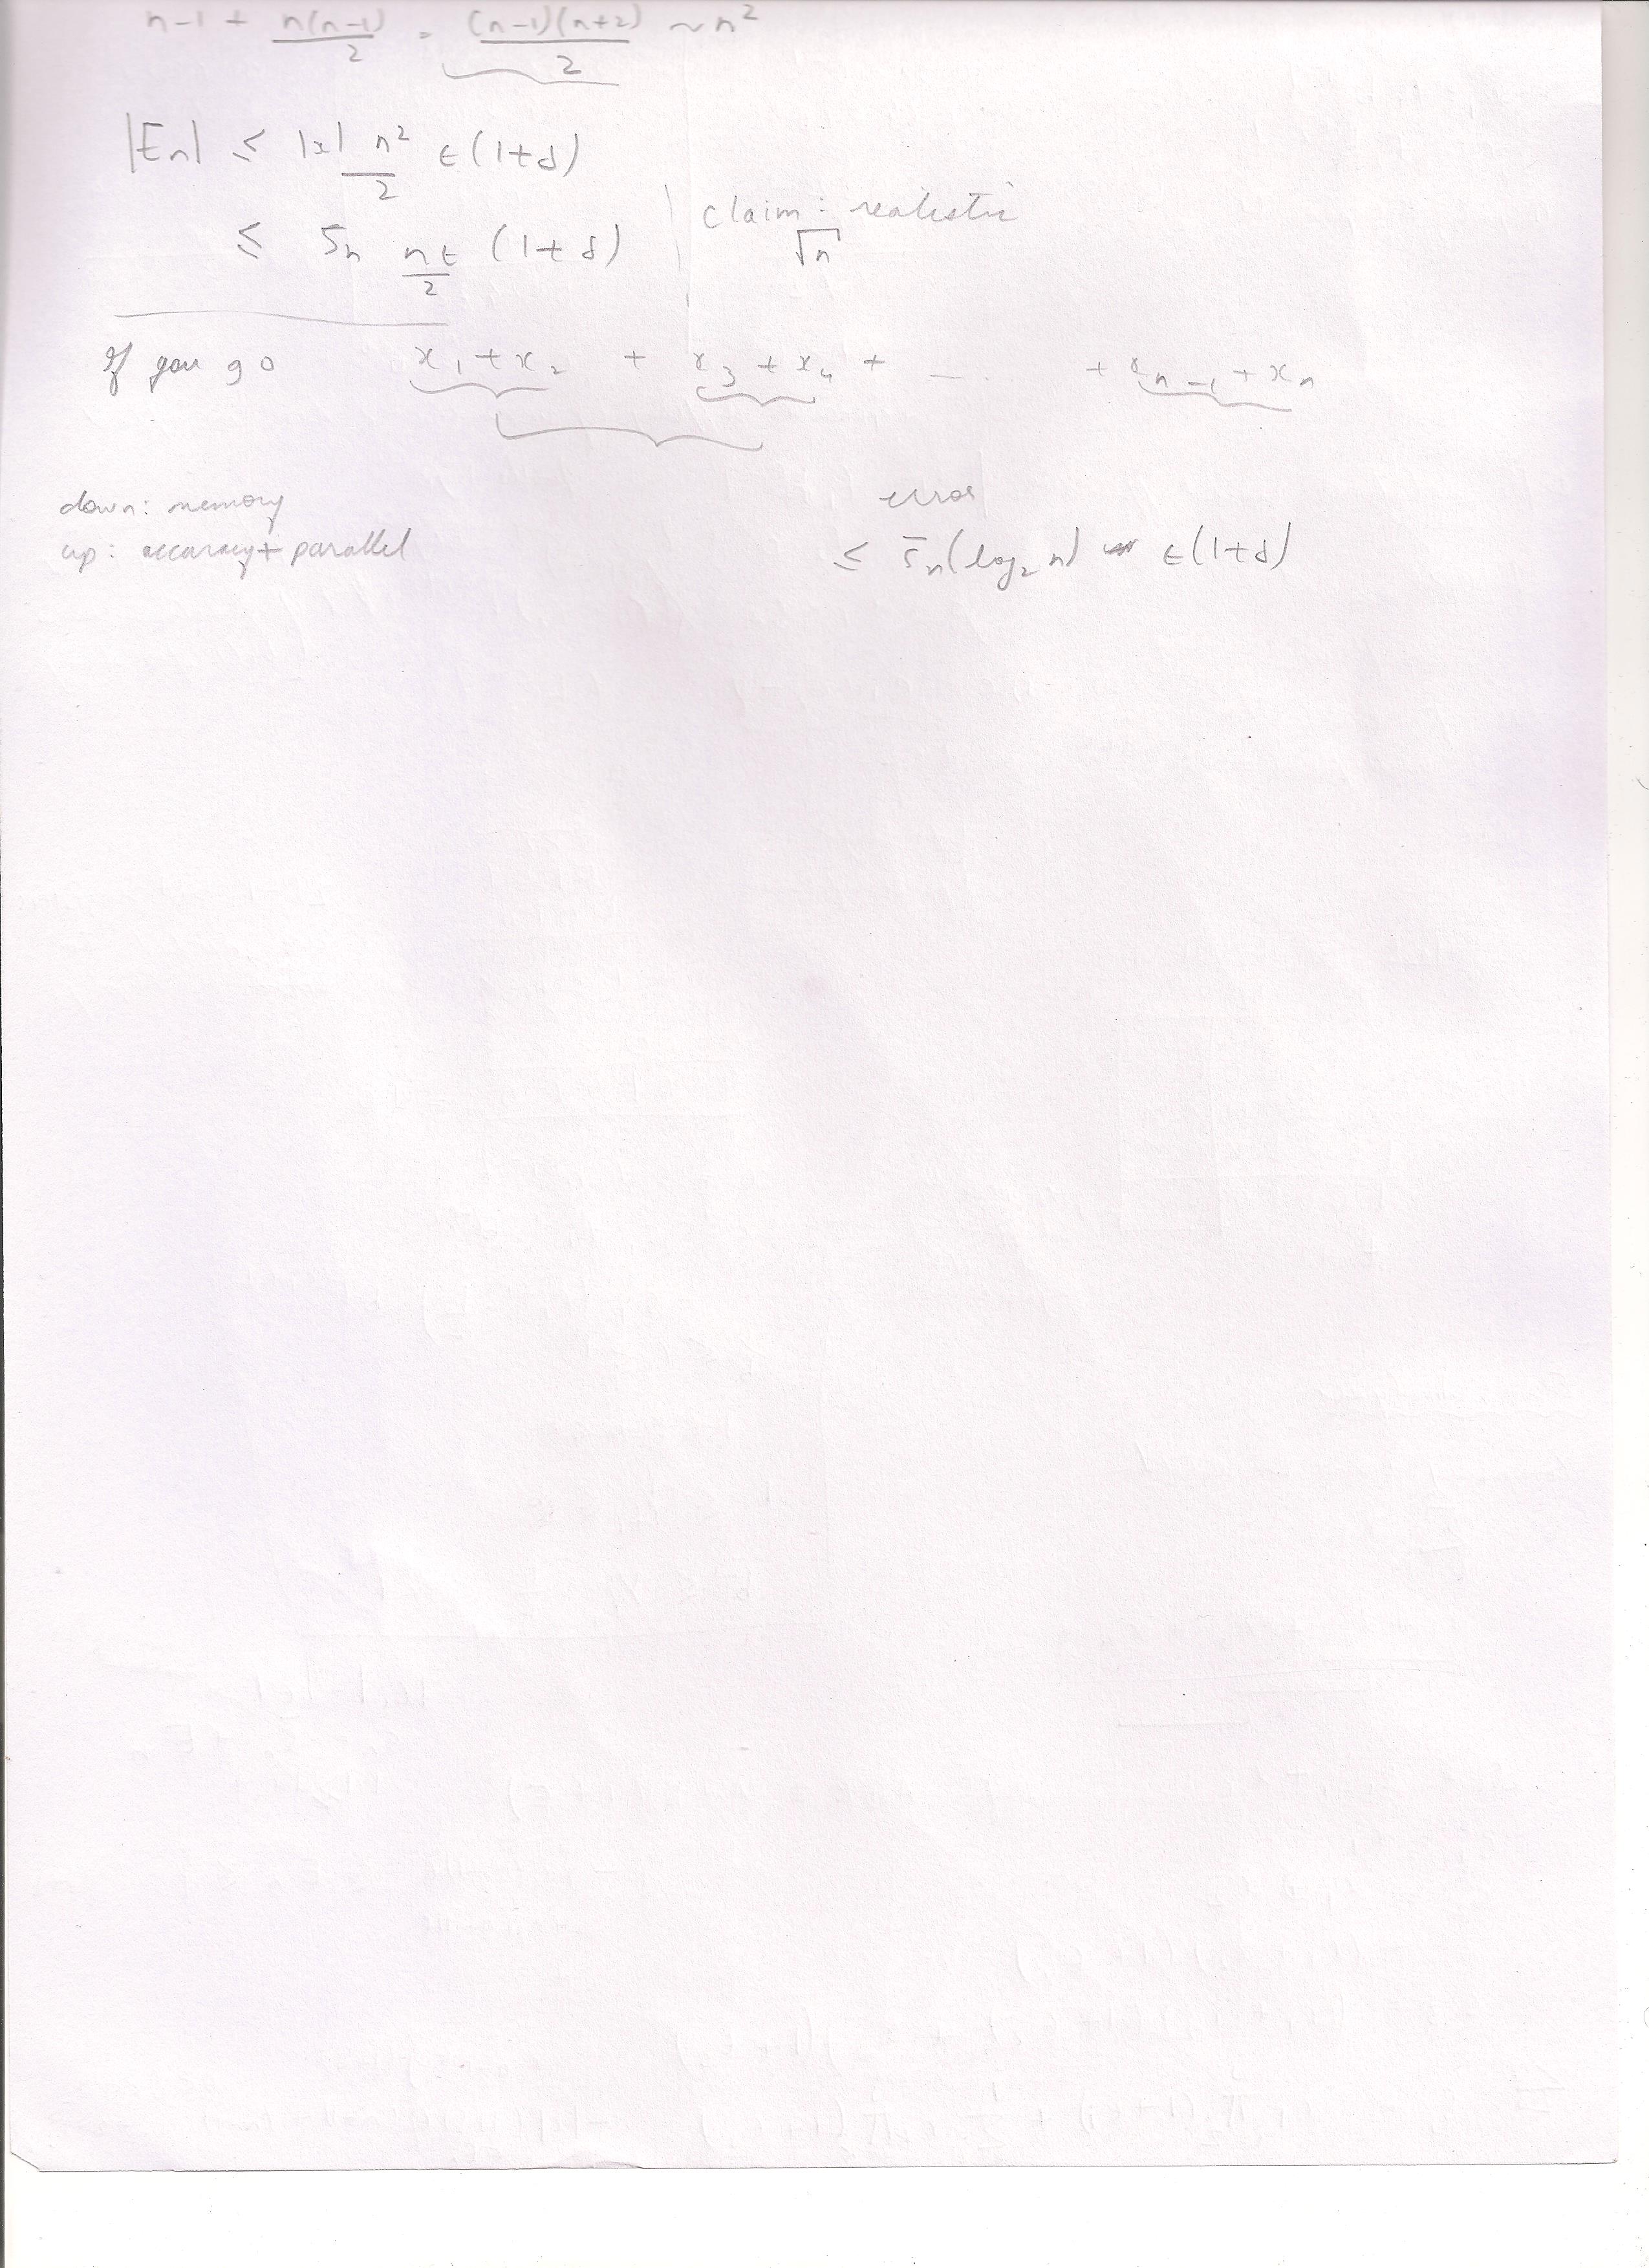 n-1 + n(n-1)/2 = (n-1)(n+2)/2 ~ n²
|En| ≤ |x| n²/2 ε(1+δ)
≤ Sn nε/2 (1+δ)
claim: realistic
√n
If you go x₁+x₂ + x₃+x₄ + ... + xₙ₋₁+xₙ
down: memory
up: accuracy + parallel
error
≤ s̄ₙ(log₂ n) ε(1+δ)